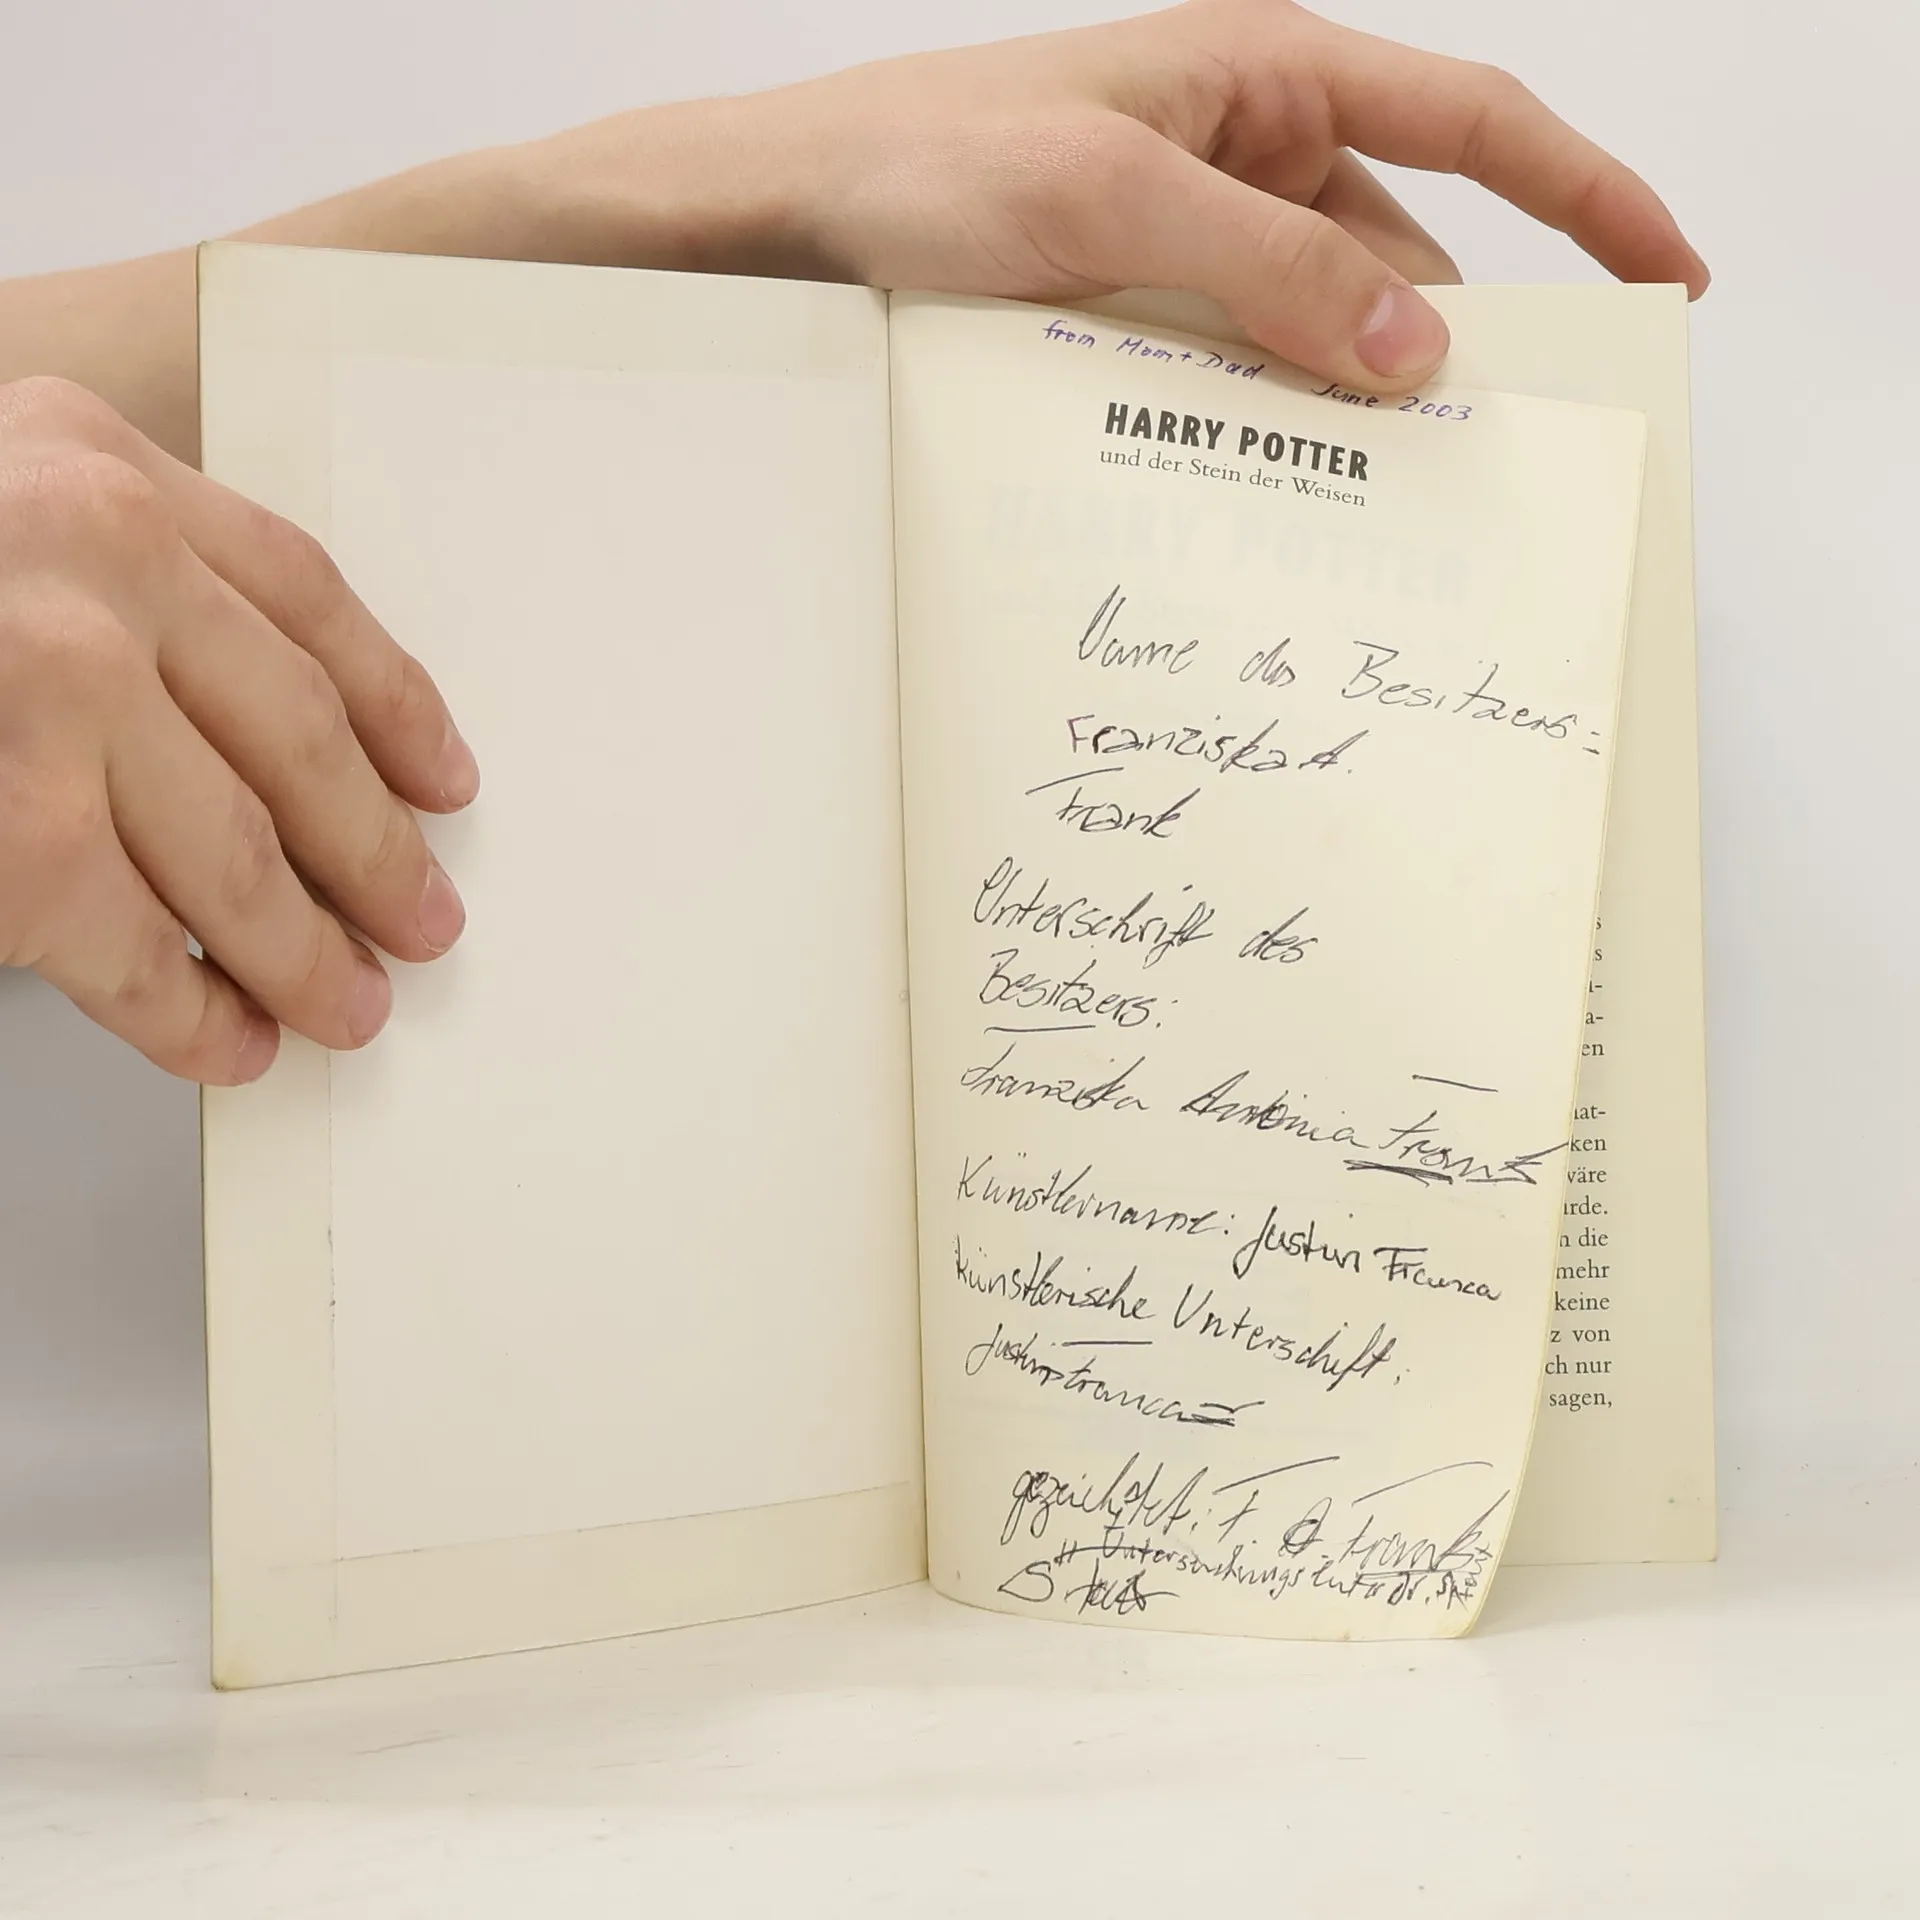 from Mom + Dad June 2003
HARRY POTTER
und der Stein der Weisen
Name des Besitzers:
Franziska A.
Frank
Unterschrift des
Besitzers:
Franziska Antonia Frank
Künstlername: Justin Franca
Künstlerische Unterschift:
Justin Franca
gezeichdet: F. A. Frank
s
s
i-
a-
en
nat-
ken
wäre
urde.
n die
mehr
keine
z von
ch nur
sagen,